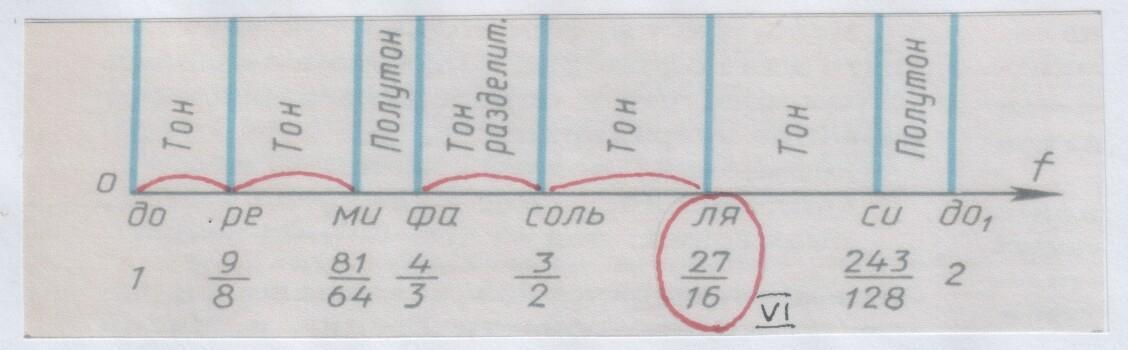 Тон Тон Полутон Тон разделит. Тон Тон Полутон
0 f
до ре ми фа соль ля си до₁
1 9/8 81/64 4/3 3/2 27/16 243/128 2
VI